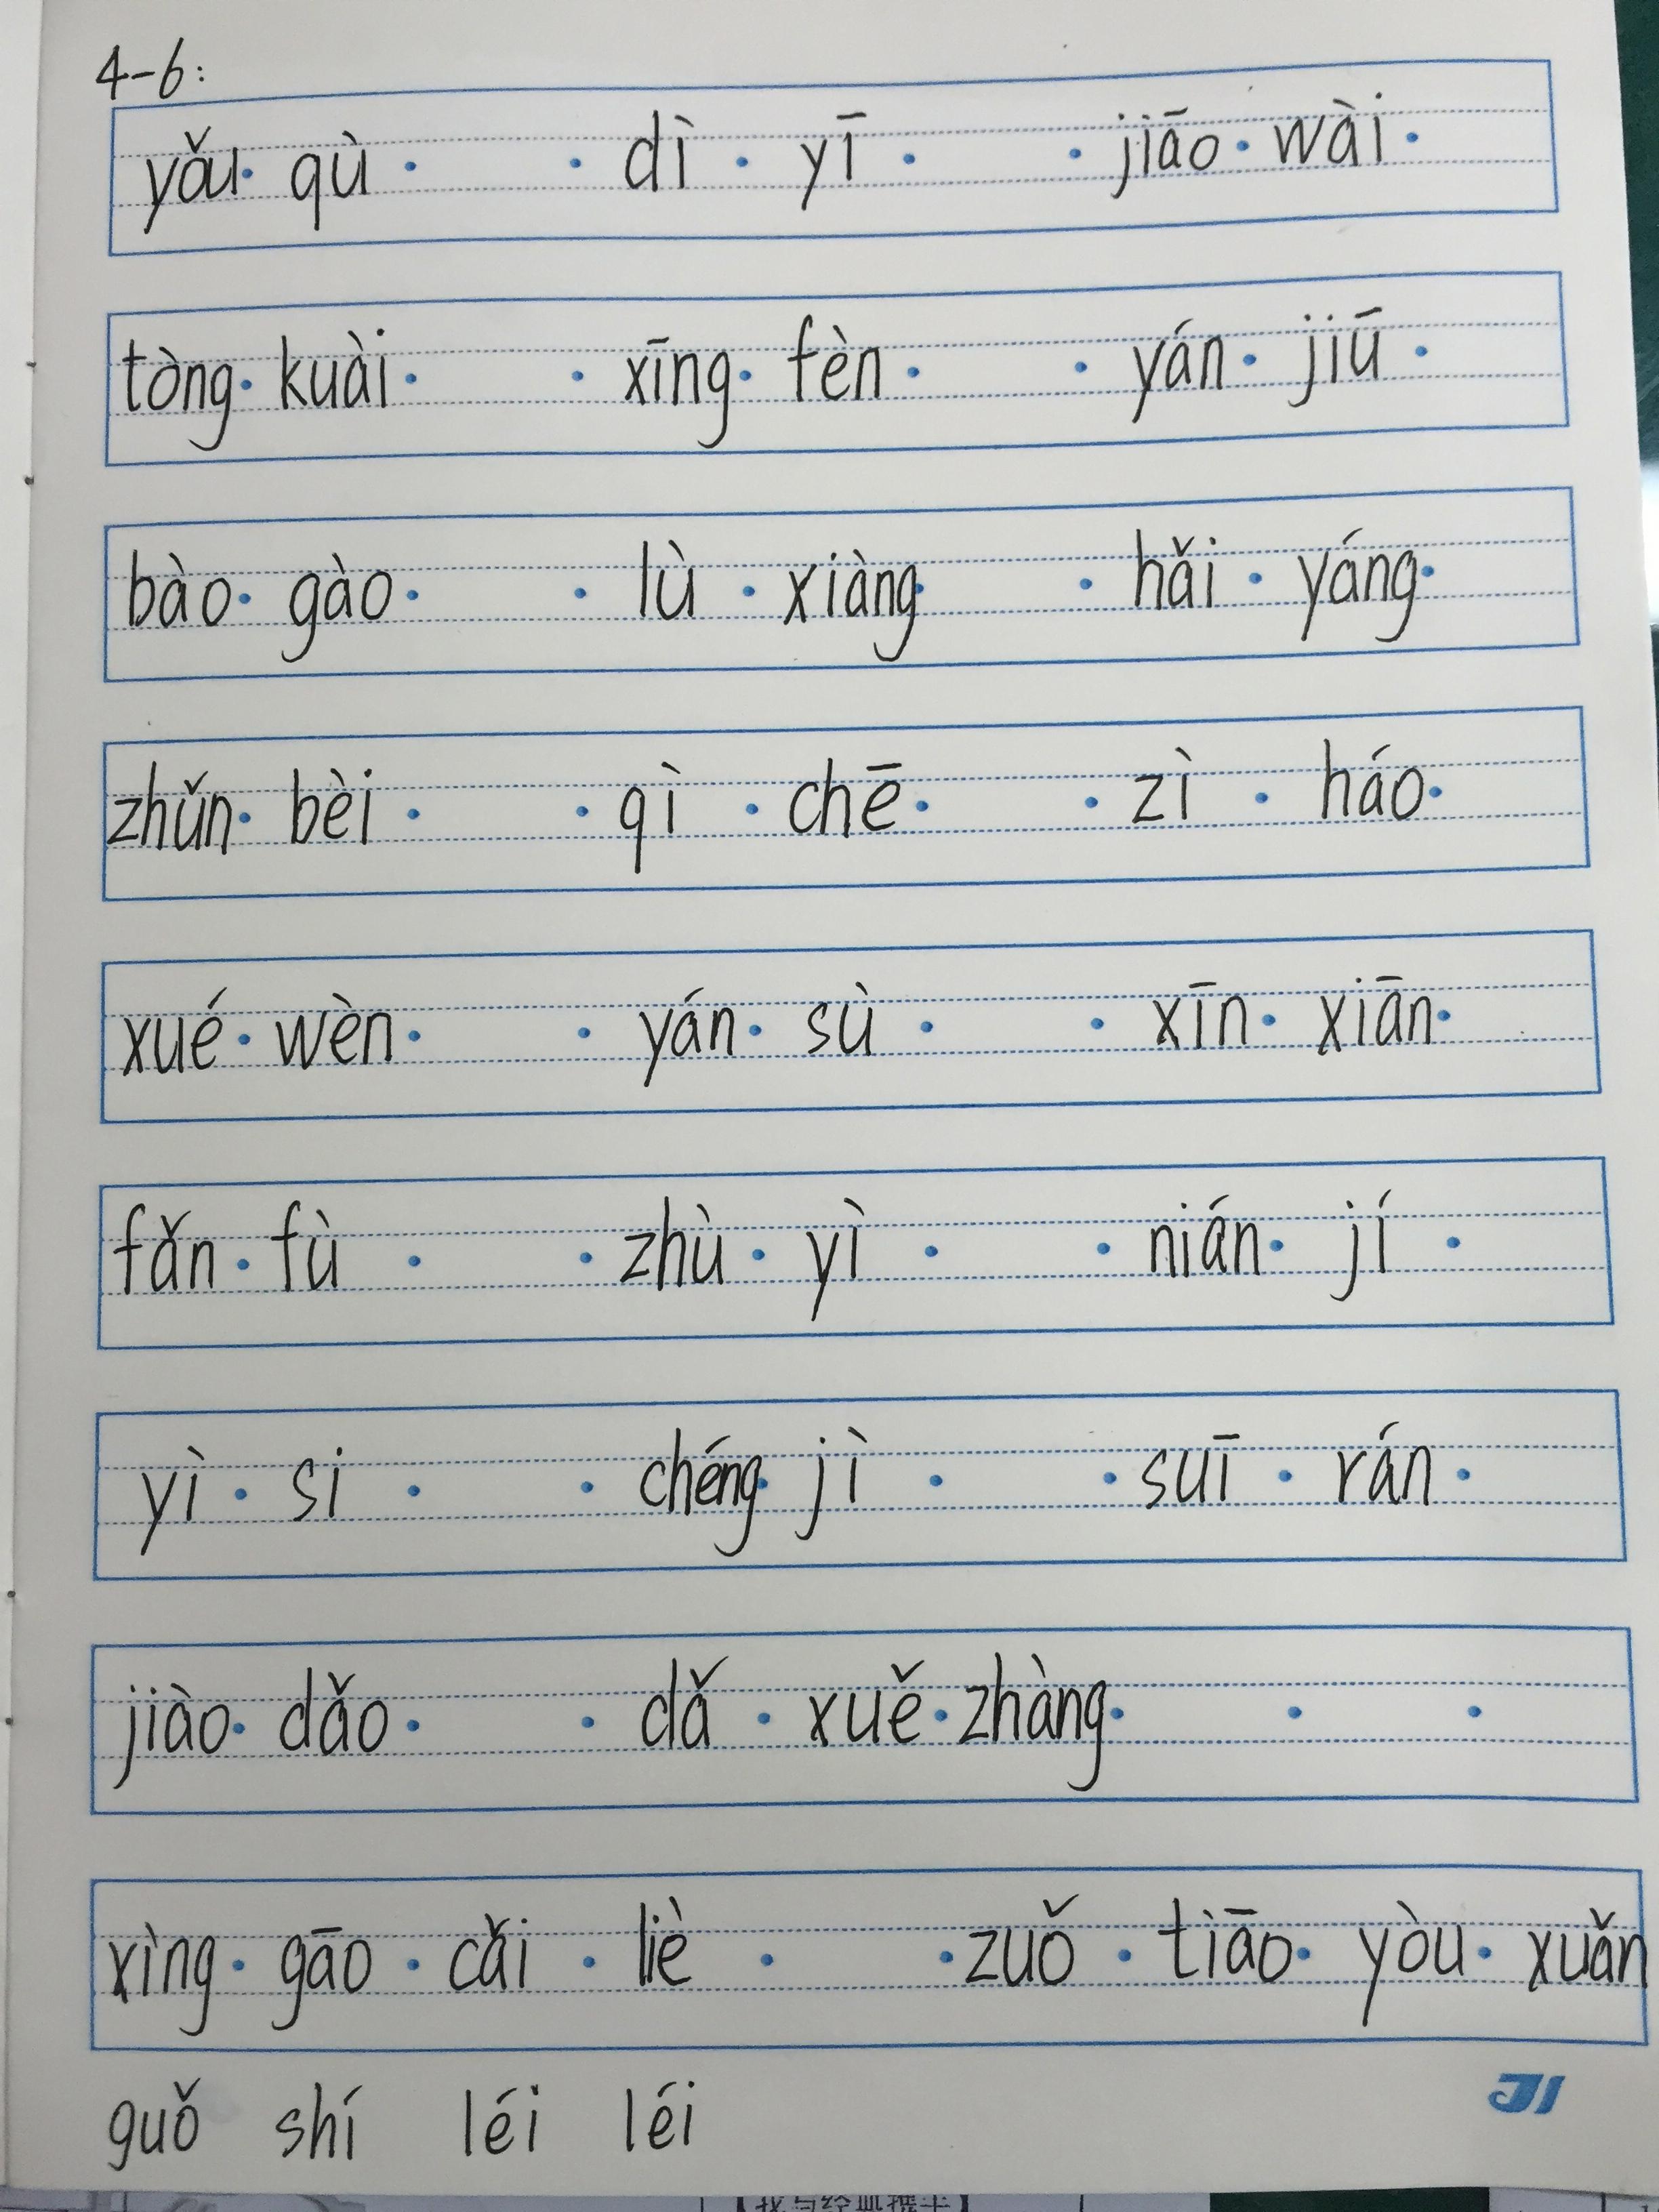 4-6:
yǒu qù dì yī jiāo wài
tòng kuài xīng fèn yán jiū
bào gào lù xiàng hǎi yáng
zhǔn bèi qì chē zì háo
xué wèn yán sù xīn xiān
fǎn fù zhù yì nián jí
yì si chéng jì suī rán
jiào dǎo dǎ xuě zhàng
xìng gāo cǎi liè zuǒ tiāo yòu xuǎn
guǒ shí léi léi